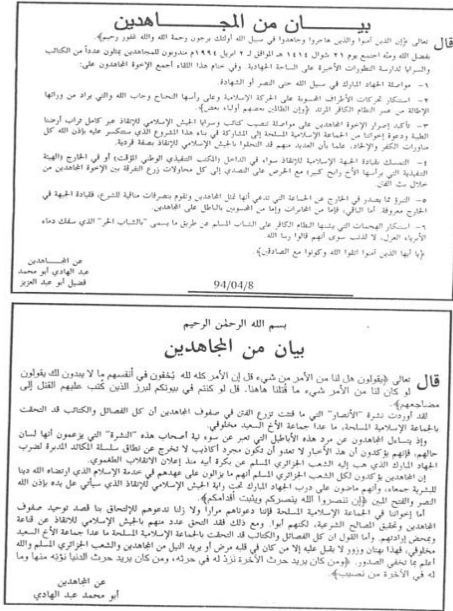 بيــــان من المجــاهدين
قال تعالى ﴿إن الذين آمنوا والذين هاجروا وجاهدوا في سبيل الله أولئك يرجون رحمة الله والله غفور رحيم﴾.
بفضل الله ومنّه اجتمع يوم ٢١ شوال ١٤١٤ هـ الموافق لـ ٢ ابريل ١٩٩٤م مندوبون للمجاهدين يمثلون عدداً من الكتائب
والسرايا لدراسة التطورات الأخيرة على الساحة الجهادية. وفي ختام هذا اللقاء أجمع الإخوة المجاهدون على:
١- مواصلة الجهاد المبارك في سبيل الله حتى النصر أو الشهادة.
٢- استنكار تحركات الأطراف المحسوبة على الحركة الإسلامية وعلى رأسها النحناح وجاب الله والتي يراد من ورائها
الإطالة من عمر النظام الكافر المرتد ﴿وإن الظالمين بعضهم أولياء بعض﴾.
٣- تأكيد إصرار الإخوة المجاهدين على مواصلة تنصيب كتائب وسرايا الجيش الإسلامي للإنقاذ عبر كامل تراب أرضنا
الطيبة ودعوة إخواننا من الجماعة الإسلامية المسلحة إلى المشاركة في بناء هذا المشروع الذي ستتكسر عليه بإذن الله كل
مناورات الكفر والإلحاد، علما بأن العديد منهم قد التحلوا بالجيش الإسلامي للإنقاذ بصفة فردية.
٤- التمسك بقيادة الجبهة الإسلامية للإنقاذ سواء في الداخل (المكتب التنفيذي الوطني المؤقت) أو في الخارج والهيئة
التنفيذية التي يرأسها الأخ رابح كبير، مع الحرص على التصدي إلى كل محاولات زرع التفرقة بين الإخوة المجاهدين من
خلال بث الفتن.
٥- التبرؤ مما يصدر في الخارج عن الجماعة التي تدعي أنها تمثل المجاهدين وتقوم بتصرفات منافية للشرع، فقيادة الجبهة في
الخارج معروفة. أما الباقي، فإما من المخابرات وإما من المحسوبين بالباطل على المجاهدين.
٦- استنكار الهجمات التي يشنها النظام الكافر على الشباب المسلم عن طريق ما يسمى "بالشباب الحر" الذي سفك دماء
الأبرياء العزل، لا لذنب سوى أنهم قالوا ربنا الله.
﴿يا أيها الذين آمنوا اتقوا الله وكونوا مع الصادقين﴾.
عن المجاهدين
عبد الهادي أبو محمد
فضيل أبو عبد العزيز
94/04/8
بسم الله الرحمن الرحيم
بيان من المجاهدين
قال تعالى ﴿يقولون هل لنا من الأمر من شيء قل إن الأمر كله لله يُخفون في أنفسهم ما لا يبدون لك يقولون
لو كان لنا من الأمر شيء ما قُتلنا هاهنا. قل لو كنتم في بيوتكم لبرز الذين كُتب عليهم القتل إلى
مضاجعهم﴾.
لقد أوردت نشرة "الأنصار" التي ما فتئت تزرع الفتن في صفوف المجاهدين أن كل الفصائل والكتائب قد التحقت
بالجماعة الإسلامية المسلحة، ما عدا جماعة الأخ السعيد مخلوفي.
وإذ يتساءل المجاهدون عن مرد هذه الأباطيل التي تعبر عن سوء نية أصحاب هذه "النشرة" التي يزعمون أنها لسان
حالهم، فإنهم يؤكدون أن هذ الأخبار لا تعدو أن تكون مجرد أكاذيب لا تخرج عن نطاق سلسلة المكائد المدبرة لضرب
الجهاد المبارك الذي هب إليه الشعب الجزائري المسلم عن بكرة أبيه منذ إعلان الانقلاب الطغموي.
إن المجاهدين يؤكدون لكل الشعب الجزائري المسلم أنهم ما يزالون على عهدهم في خدمة الإسلام الذي ارتضاه الله دينا
للبشرية جمعاء، وأنهم ماضون على درب الجهاد المبارك تحت راية الجيش الإسلامي للإنقاذ الذي سيأتي على يده بإذن الله
النصر والفتح المبين ﴿إن تنصروا الله ينصركم ويثبت أقدامكم﴾.
أما إخواننا في الجماعة الإسلامية المسلحة فإننا دعوناهم مرارا ولا زلنا ندعوهم للإلتحاق بنا قصد توحيد صفوف
المجاهدين وتحقيق المصالح الشرعية، لكنهم أبوا. ومع ذلك فقد التحق عدد منهم بالجيش الإسلامي للإنقاذ عن قناعة
وبمحض إرادتهم. وأما القول ان كل الفصائل والكتائب قد التحقت بالجماعة الإسلامية المسلحة ما عدا جماعة الأخ السعيد
مخلوفي، فهذا بهتان وزور لا يقبل عليه إلا من كان في قلبه مرض أو يريد النيل من المجاهدين والشعب الجزائري المسلم والله
أعلم بما تخفي الصدور. ﴿ومن كان يريد حرث الآخرة نزد له في حرثه، ومن كان يريد حرث الدنيا نؤته منها وما
له في الآخرة من نصيب﴾.
عن المجاهدين
أبو محمد عبد الهادي